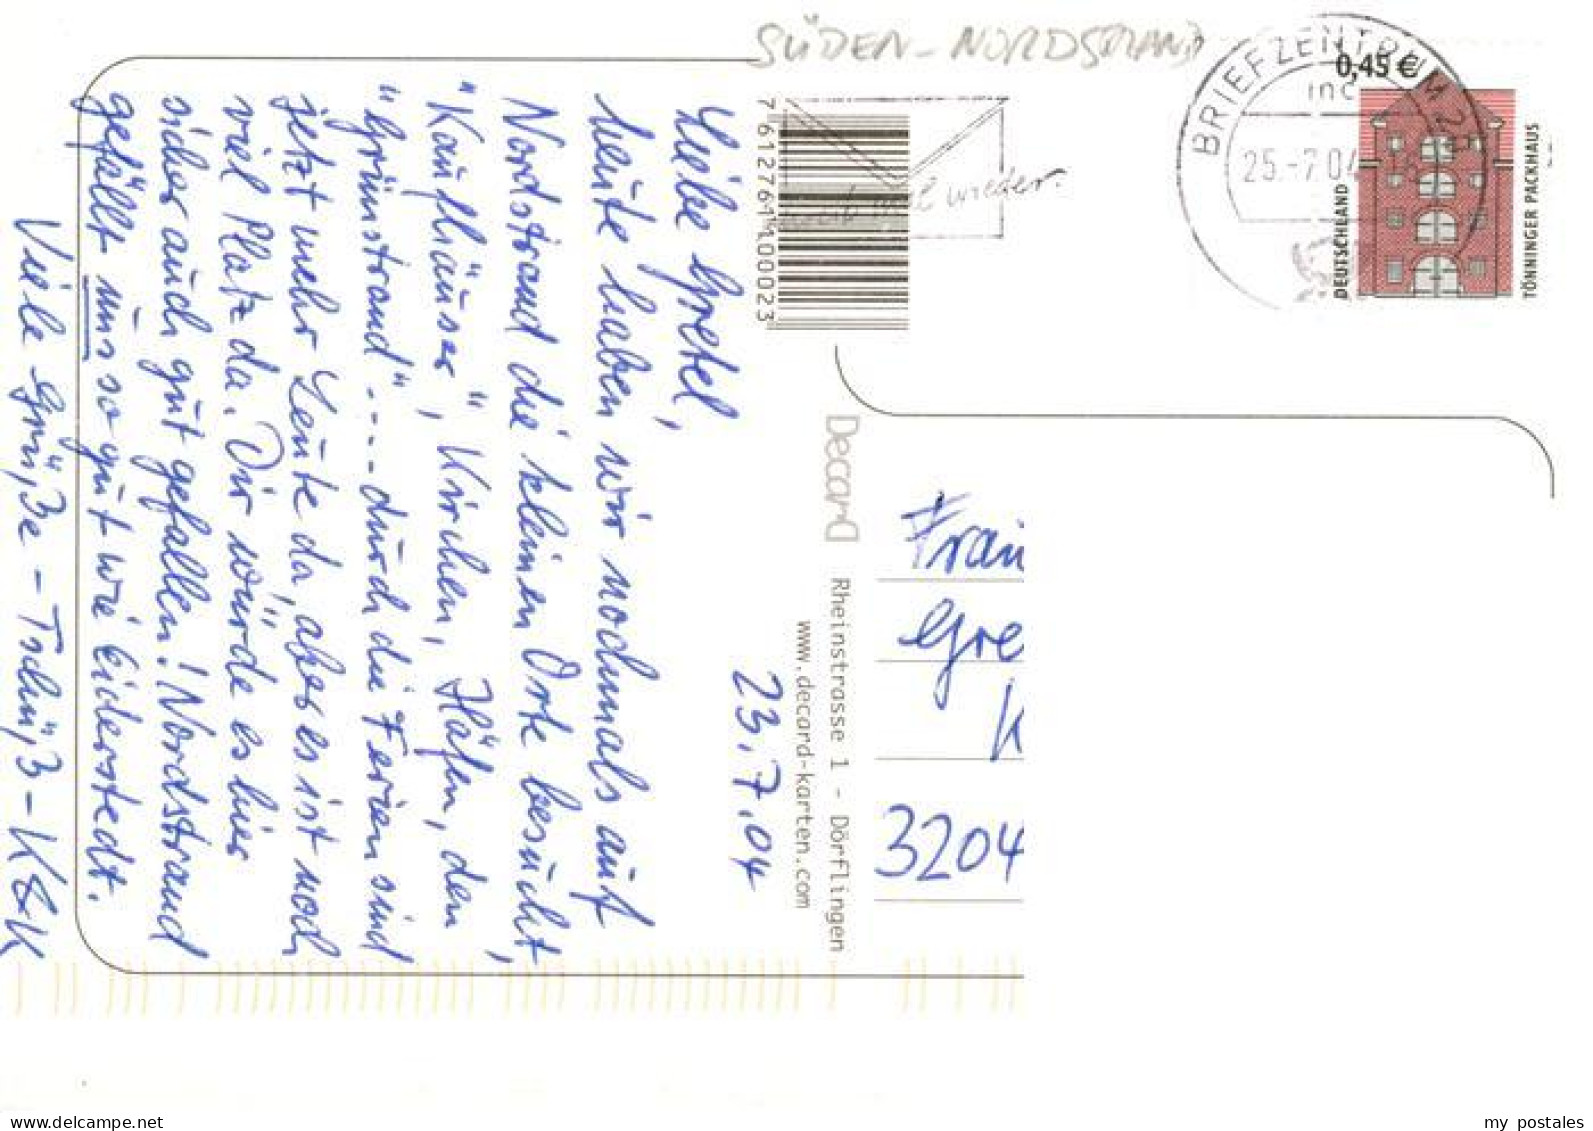 SÜDEN - NORDSTRAND
BRIEFZENTRUM 25
25.-7.04
0,45 €
DEUTSCHLAND
TÖNNINGER PACKHAUS
mal wieder.
7612761100023
Decard
Rheinstrasse 1 - Dörflingen
www.decard-karten.com
23.7.04
Liebe Gretel,
heute haben wir nochmals auf
Nordstrand die kleinen Orte besucht,
"Kaufhäuser," Kirchen, Häfen, den
"Grünstrand" .... durch die Ferien sind
jetzt mehr Leute da, aber es ist noch
viel Platz da. Dir würde es hier
sicher auch gut gefallen! Nordstrand
gefällt uns so gut wie Eiderstedt.
Viele Grüße - Tschüß - K&K
Frau
Gre
3204
my postales